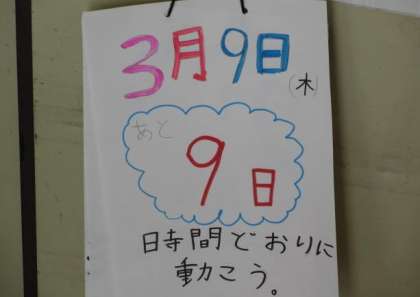 3月9日
(木)
あと
9日
時間どおりに
動こう。